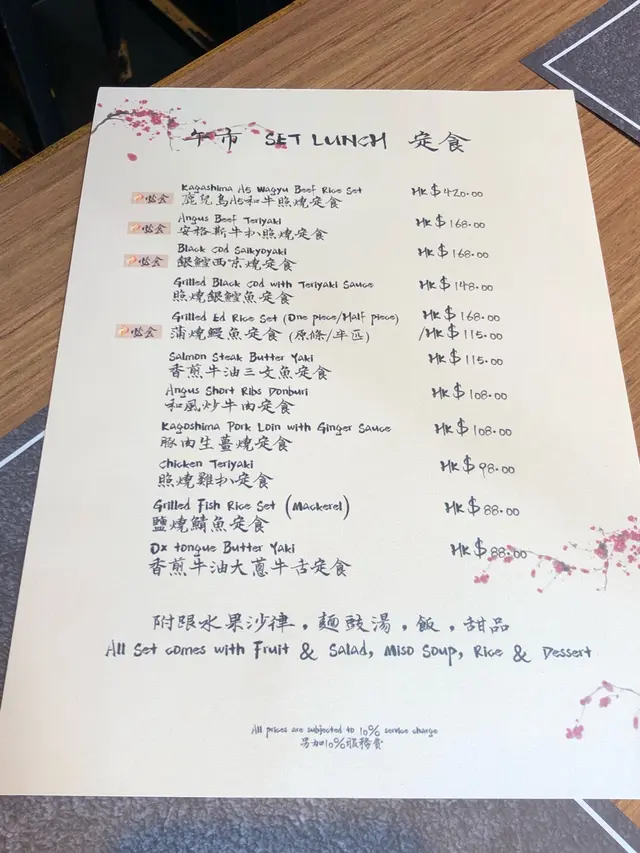 午市 SET LUNCH 定食
Kagashima A5 Wagyu Beef Rice Set HK$420.00
必食 鹿兒島A5和牛照燒定食
Angus Beef Teriyaki HK$168.00
必食 安格斯牛扒照燒定食
Black Cod Saikyoyaki HK$168.00
必食 銀鱈西京燒定食
Grilled Black Cod with Teriyaki Sauce HK$148.00
照燒銀鱈魚定食
Grilled Eel Rice Set (One piece/Half piece) HK$168.00
必食 蒲燒鰻魚定食 (原條/半匹) /HK$115.00
Salmon Steak Butter Yaki HK$115.00
香煎牛油三文魚定食
Angus Short Ribs Donburi HK$108.00
和風炒牛肉定食
Kagoshima Pork Loin with Ginger Sauce HK$108.00
豚肉生薑燒定食
Chicken Teriyaki HK$98.00
照燒雞扒定食
Grilled Fish Rice Set (Mackerel) HK$88.00
鹽燒鯖魚定食
Ox tongue Butter Yaki HK$88.00
香煎牛油大蔥牛舌定食
附跟水果沙律，麵豉湯，飯，甜品
All Set comes with Fruit & Salad, Miso Soup, Rice & Dessert
All prices are subjected to 10% service charge
另加10%服務費